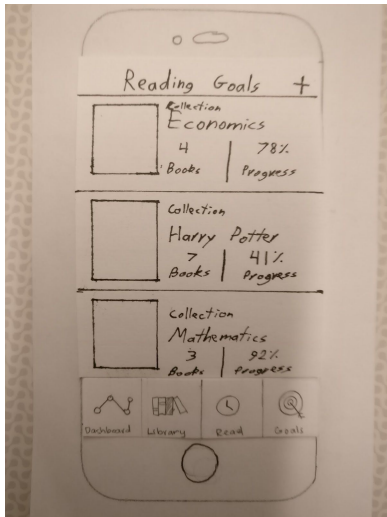 Reading Goals +
Collection
Economics
4 78%
Books Progress
Collection
Harry Potter
7 41%
Books Progress
Collection
Mathematics
3 92%
Books Progress
Dashboard Library Read Goals